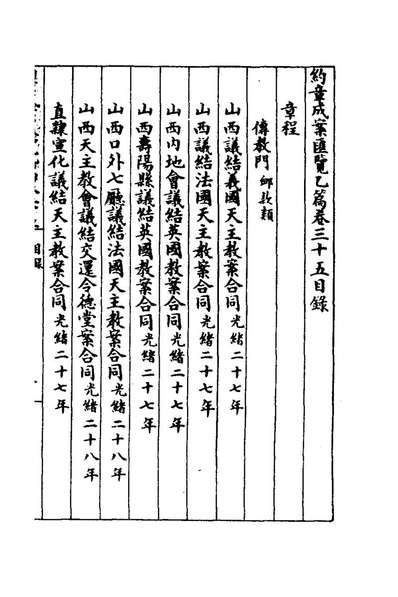 約章成案匯覽乙篇卷三十五目錄
章程
傳教門 卹款類
山西議結義國天主教案合同光緒二十七年
山西議結法國天主教案合同光緒二十七年
山西內地會議結英國教案合同光緒二十七年
山西壽陽縣議結英國教案合同光緒二十七年
山西口外七廳議結法國天主教案合同光緒二十八年
山西天主教會議結交還令德堂案合同光緒二十八年
直隸宣化議結天主教案合同光緒二十七年
目錄